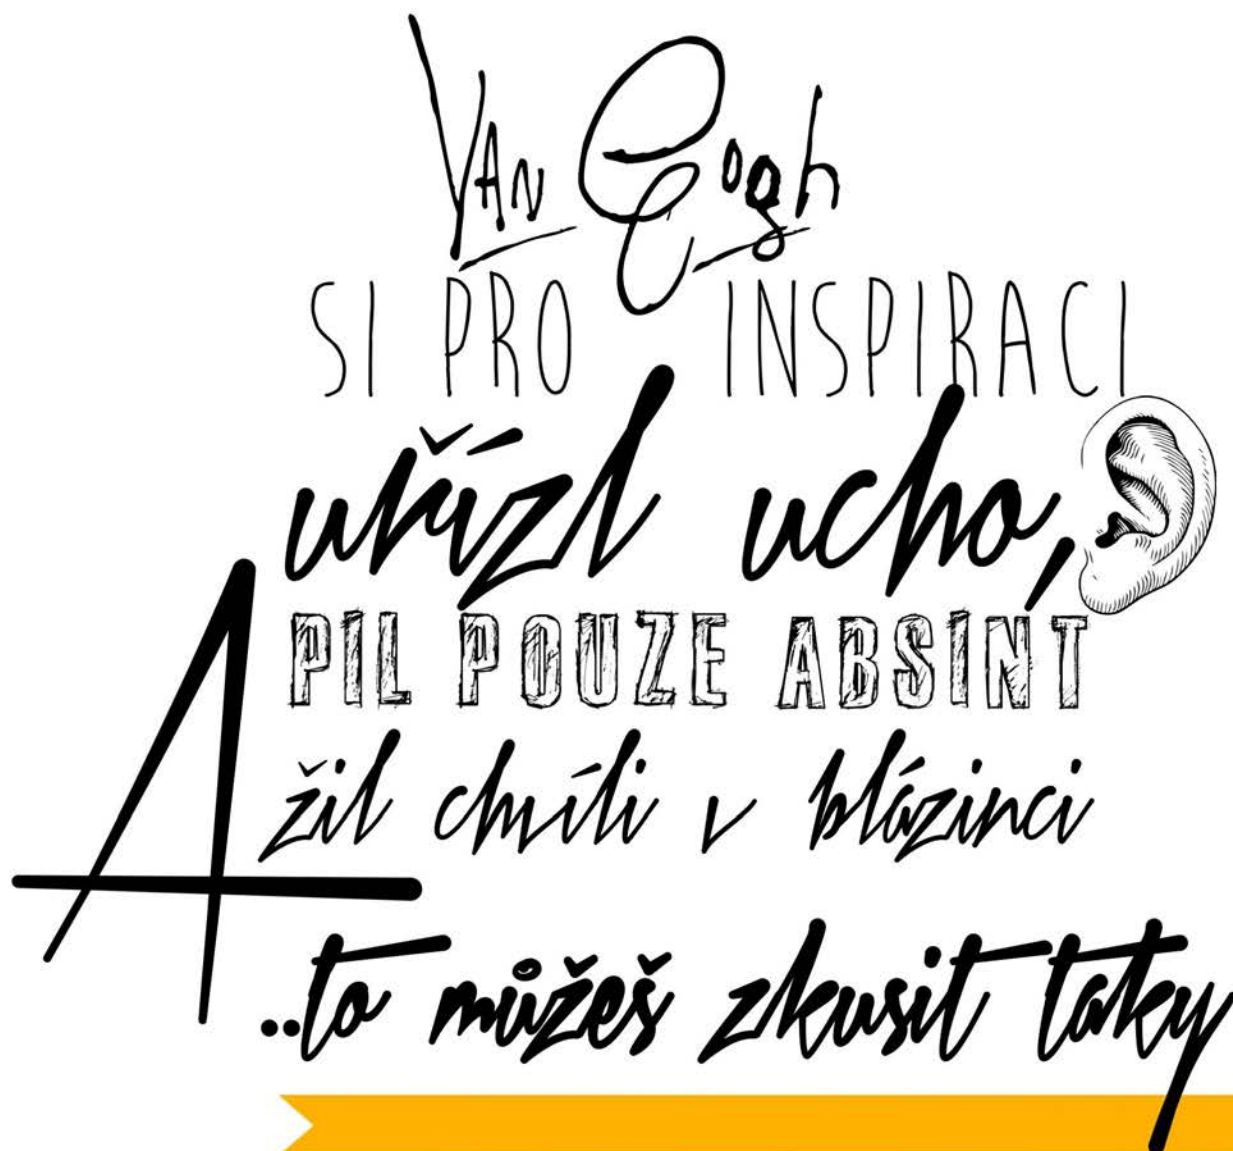 Van Gogh
SI PRO INSPIRACI
uřízl ucho,
PIL POUZE ABSINT
A žil chvíli v blázinci
..to můžeš zkusit taky